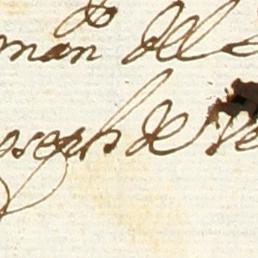 man del
oseph de Ve